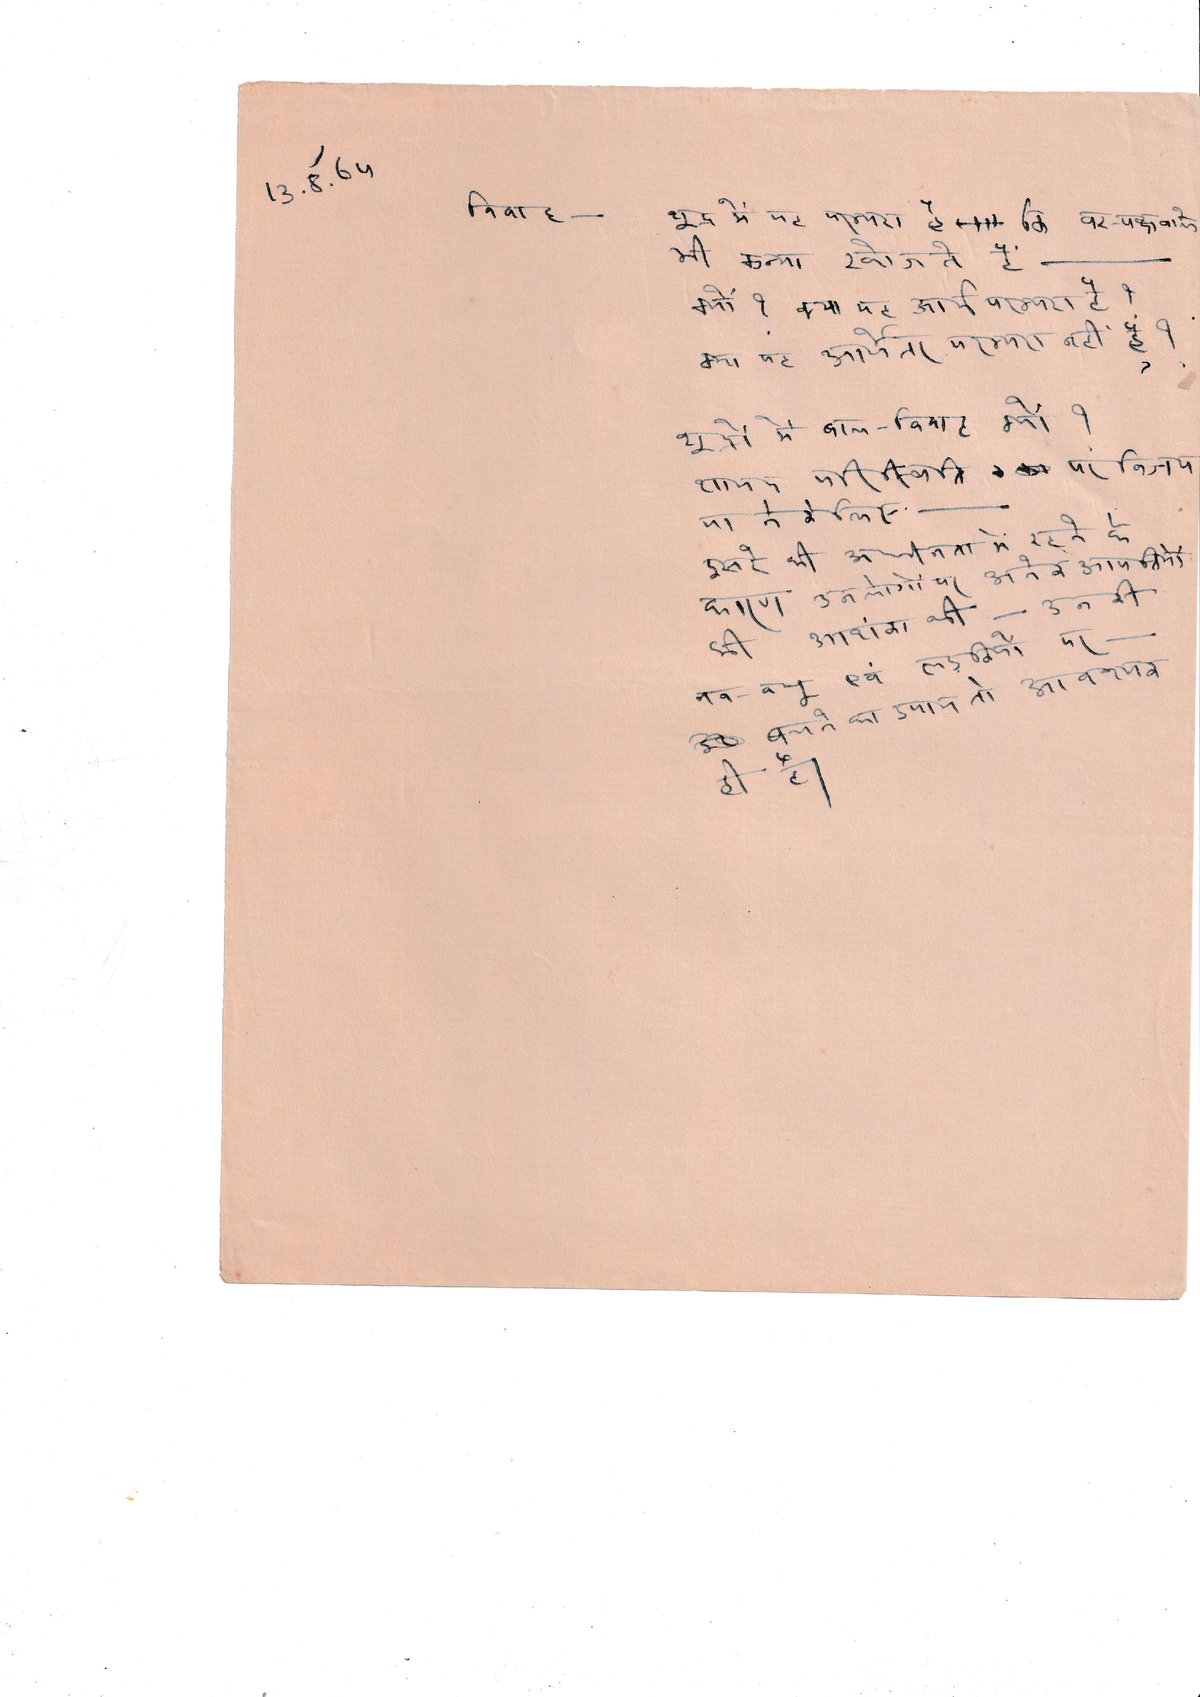 13.8.64
विवाह — शूद्र में यह परम्परा है कि वर-पक्षवाले
भी कन्या खोजते हैं ———
क्यों ? क्या यह आर्य परम्परा है ?
क्या यह आर्येतर परम्परा नहीं है ?
शूद्रों में बाल-विवाह क्यों ?
शायद परिस्थिति पर विजय
पाने के लिए ———
दूसरे की अधीनता में रहने के
कारण उनलोगों पर अनेक आपत्तियों
की आशंका थी — उनकी
नव-वधु एवं लड़कियों पर —
बचने का उपाय तो आवश्यक
ही है।